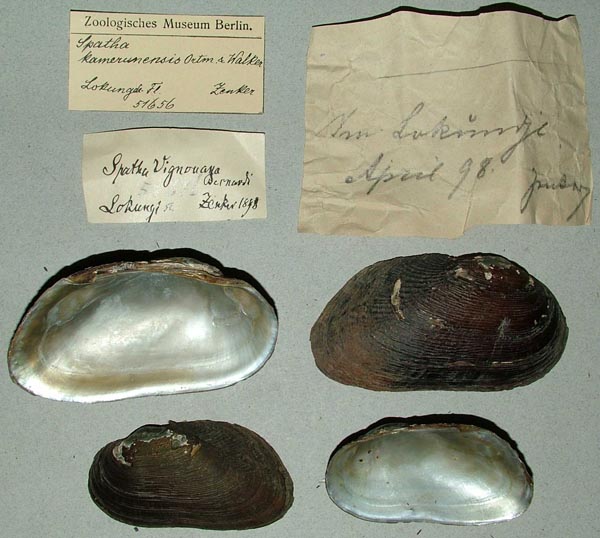 Zoologisches Museum Berlin.
Spatha
kamerunensis Ortm. & Walker
Lokungde Fl. Zenker
51656
Spatha Vignouana
Bernardi
Lokungi fl. Zenker 1898
Im Lokundje.
April 98. Zenker